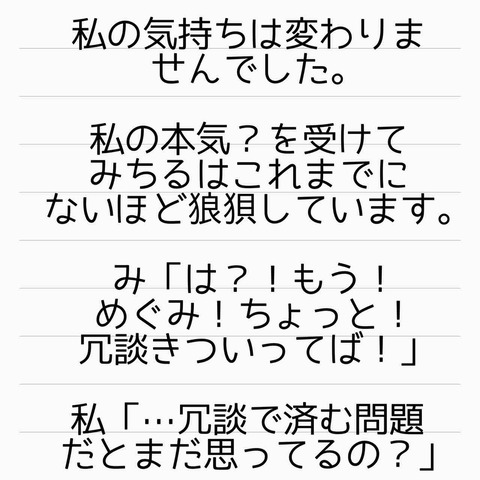 私の気持ちは変わりま
せんでした。
私の本気？を受けて
みちるはこれまでに
ないほど狼狽しています。
み「は？！もう！
めぐみ！ちょっと！
冗談きついってば！」
私「…冗談で済む問題
だとまだ思ってるの？」